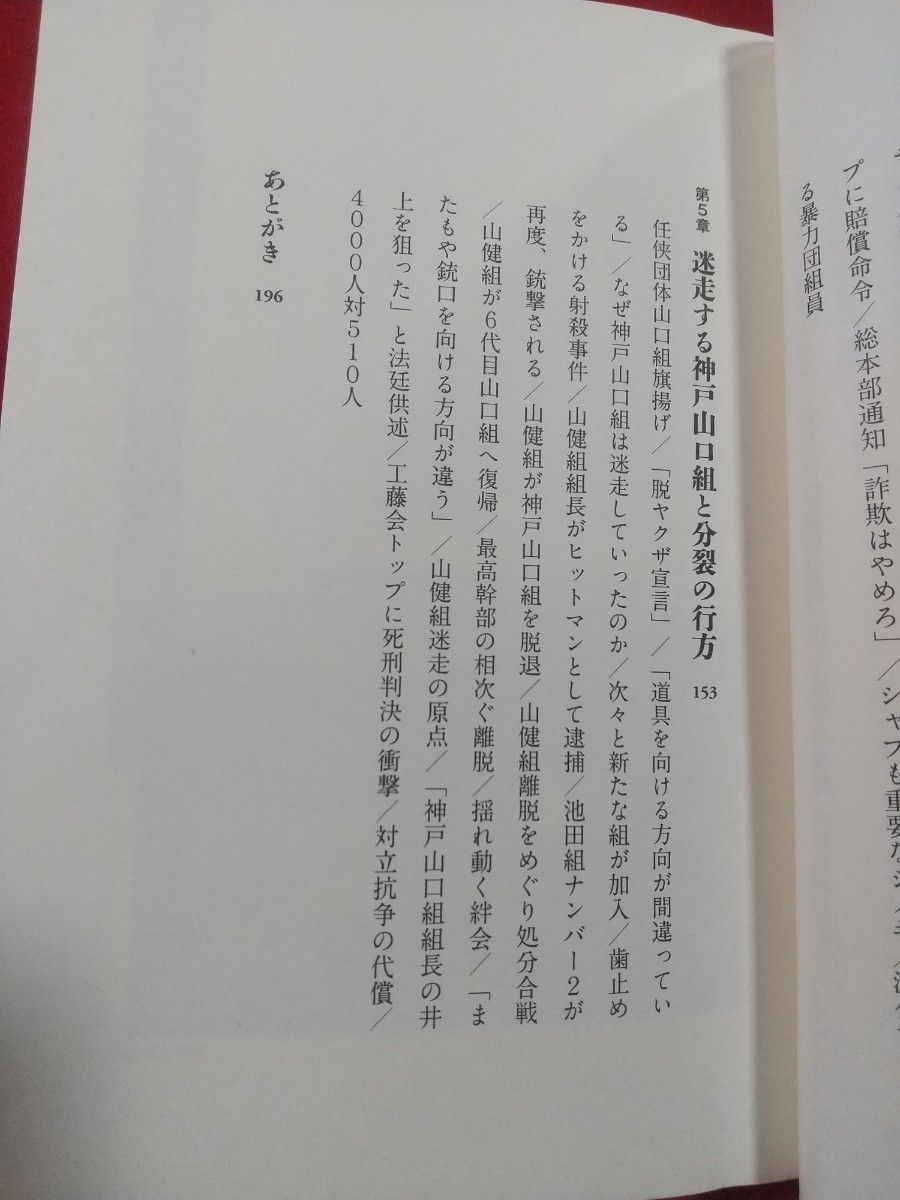 プに賠償命令／総本部通知「詐欺はやめろ」／シャブも重要な
る暴力団組員
第5章 迷走する神戸山口組と分裂の行方 153
任侠団体山口組旗揚げ／「脱ヤクザ宣言」／「道具を向ける方向が間違ってい
る」／なぜ神戸山口組は迷走していったのか／次々と新たな組が加入／歯止め
をかける射殺事件／山健組組長がヒットマンとして逮捕／池田組ナンバー2が
再度、銃撃される／山健組が神戸山口組を脱退／山健組離脱をめぐり処分合戦
／山健組が6代目山口組へ復帰／最高幹部の相次ぐ離脱／揺れ動く絆会／「ま
たもや銃口を向ける方向が違う」／山健組迷走の原点／「神戸山口組組長の井
上を狙った」と法廷供述／工藤会トップに死刑判決の衝撃／対立抗争の代償／
4000人対510人
あとがき 196